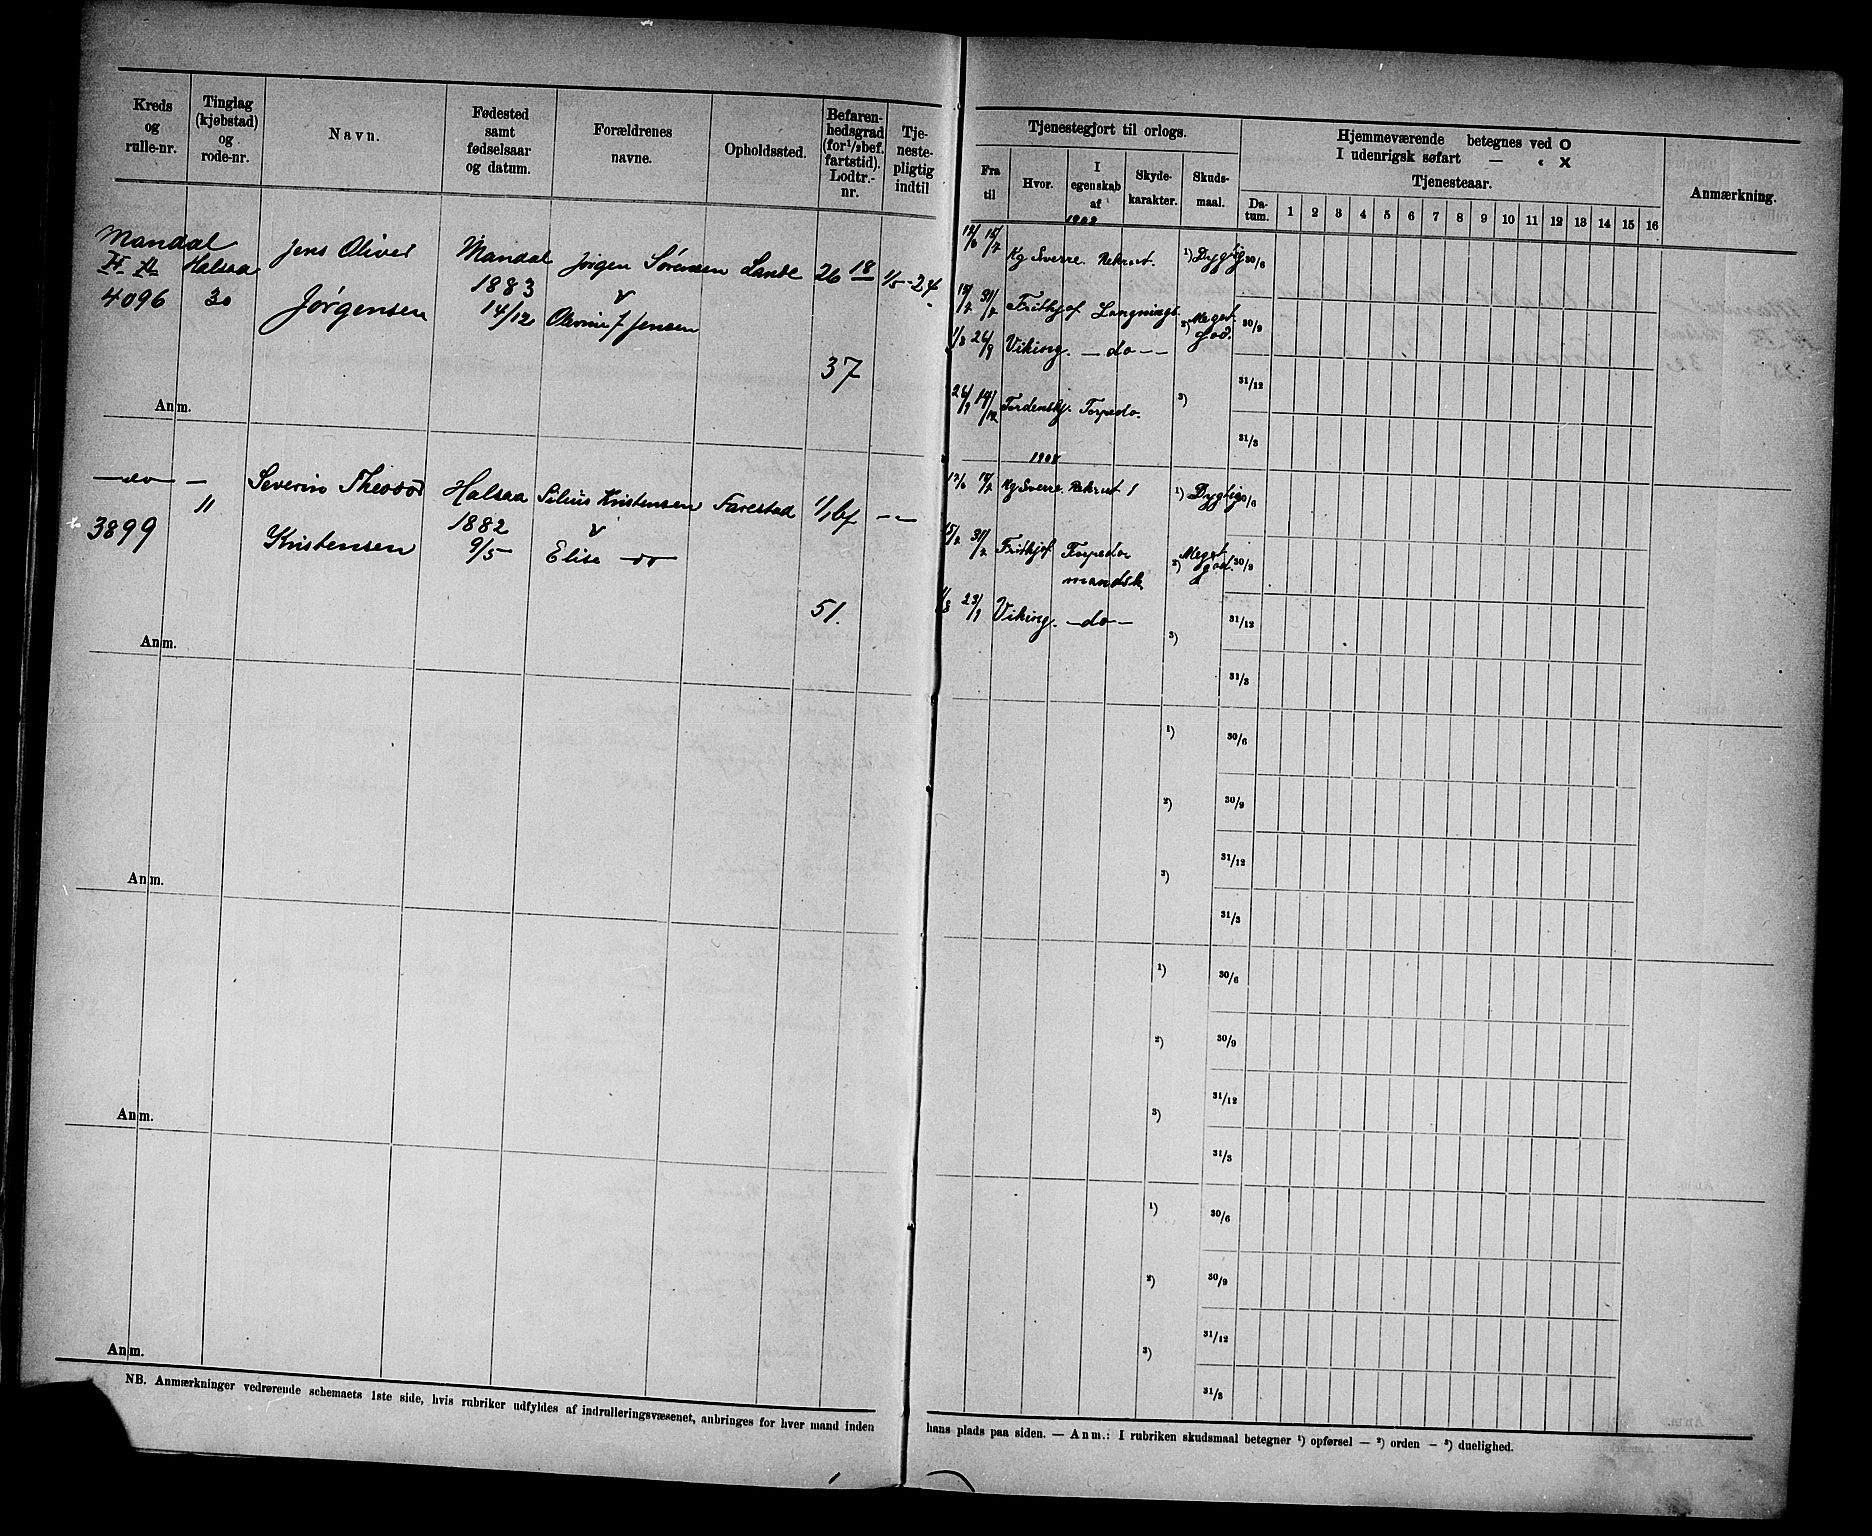 Kreds og rulle-nr.
Tinglag (kjøbstad) og rode-nr.
Navn.
Fødested samt fødselsaar og datum.
Forældrenes navne.
Opholdssted.
Befarenhedsgrad (for 1/1 bef. fartstid). Lodtr.-nr.
Tjenestepligtig indtil
Tjenestegjort til orlogs.
Fra til
Hvor.
I egenskab af
Skydekarakter.
Skudsmaal.
Hjemmeværende betegnes ved O
I udenrigsk søfart — " X
Tjenesteaar.
Datum. 1 2 3 4 5 6 7 8 9 10 11 12 13 14 15 16
Anmærkning.
Mandal
4096
Halsaa
30
Jens Oliver
Jørgensen
Mandal
1883
14/12
Jørgen Sørensen
Jensen
Lande
26 18
37
1/5-24
Kg Sverre. Rekrut.
1) Dygtig 30/6
Fridtjof
2) Meget God. 30/9
1/8 26/9 Viking. —do—
31/12
26/9 14/12 Tordenskj. Torpedo.
3)
31/3
Anm.
—do— —
3899
11
Severin Theodor
Kristensen
Halsaa
1882
9/5
Kristensen
Elise —do
Farestad
1/1 bf
51.
— —
Kg Sverre. Rekrut
1) Dygtig 30/6
Fridtjof Torpedo mandsk
2) Meget god. 30/9
1/8 23/9 Viking. —do—
31/12
3)
31/3
Anm.
1) 30/6
2) 30/9
31/12
3)
31/3
Anm.
1) 30/6
2) 30/9
31/12
3)
31/3
Anm.
1) 30/6
2) 30/9
31/12
3)
31/3
Anm.
NB. Anmærkninger vedrørende schemaets 1ste side, hvis rubriker udfyldes af indrulleringsvæsenet, anbringes for hver mand inden
hans plads paa siden. — Anm.: I rubriken skudsmaal betegner 1) opførsel — 2) orden — 3) duelighed.